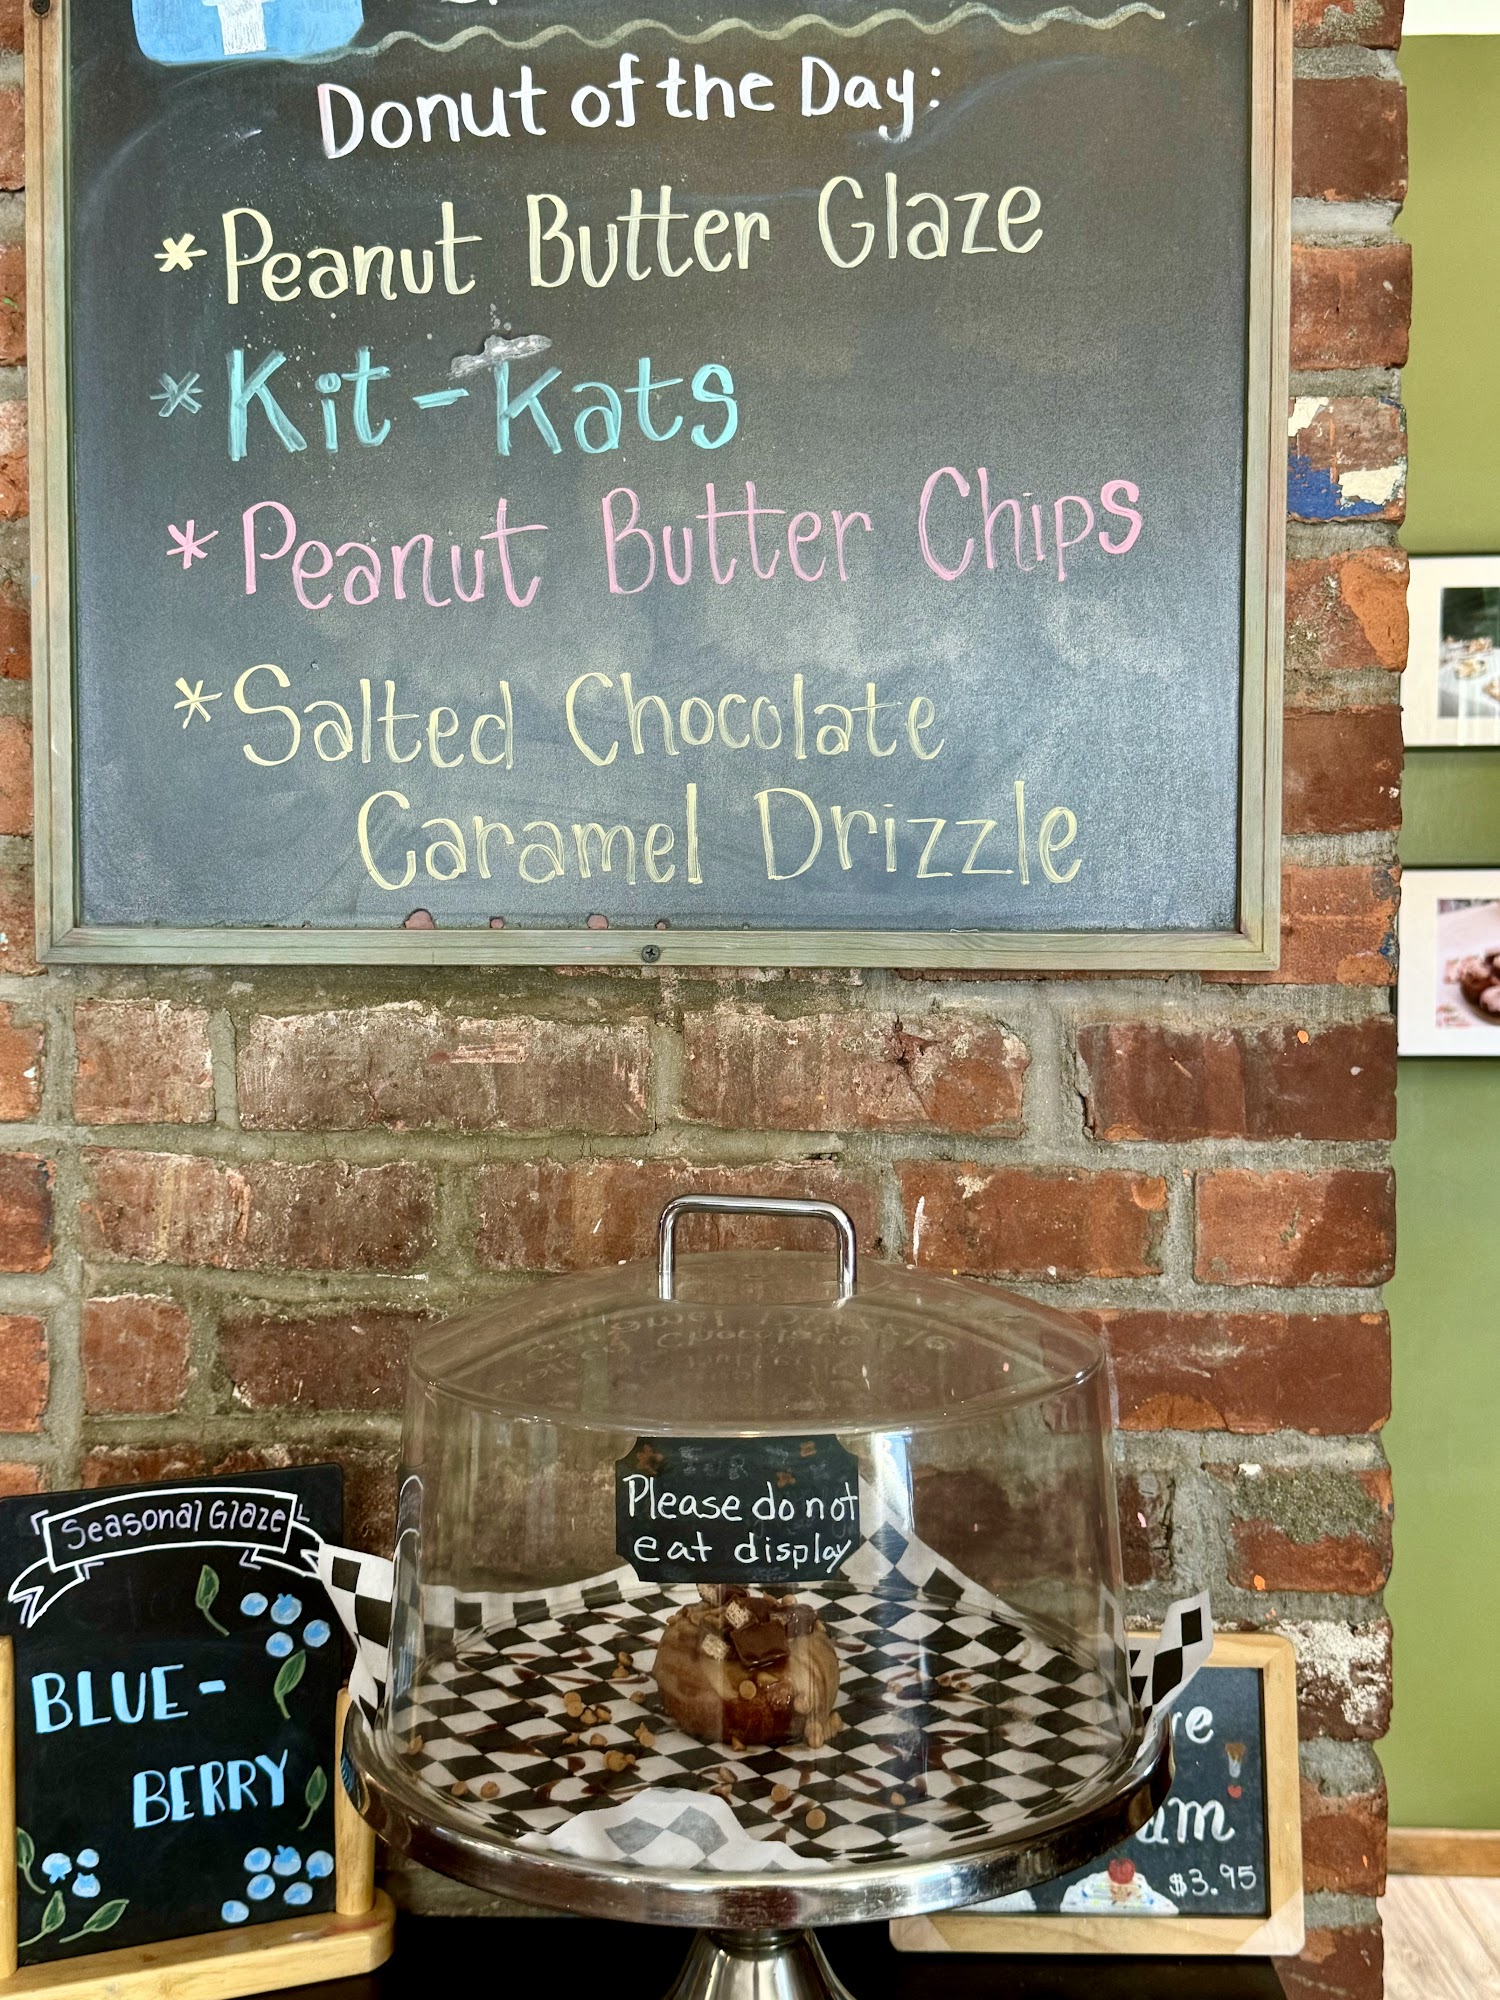 Donut of the Day:
*Peanut Butter Glaze
*Kit-Kats
*Peanut Butter Chips
*Salted Chocolate
Caramel Drizzle
Please do not
eat display
Seasonal Glaze
BLUE-
BERRY
$3.95